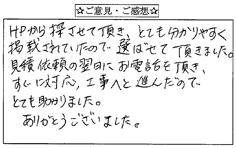 ☆ご意見・ご感想☆
HPから探させて頂き、とても分かりやすく
掲載されていたので選ばせて頂きました。
見積依頼の翌日にお電話を頂き、
すぐに対応、工事へと進んだので
とても助かりました。
ありがとうございました。